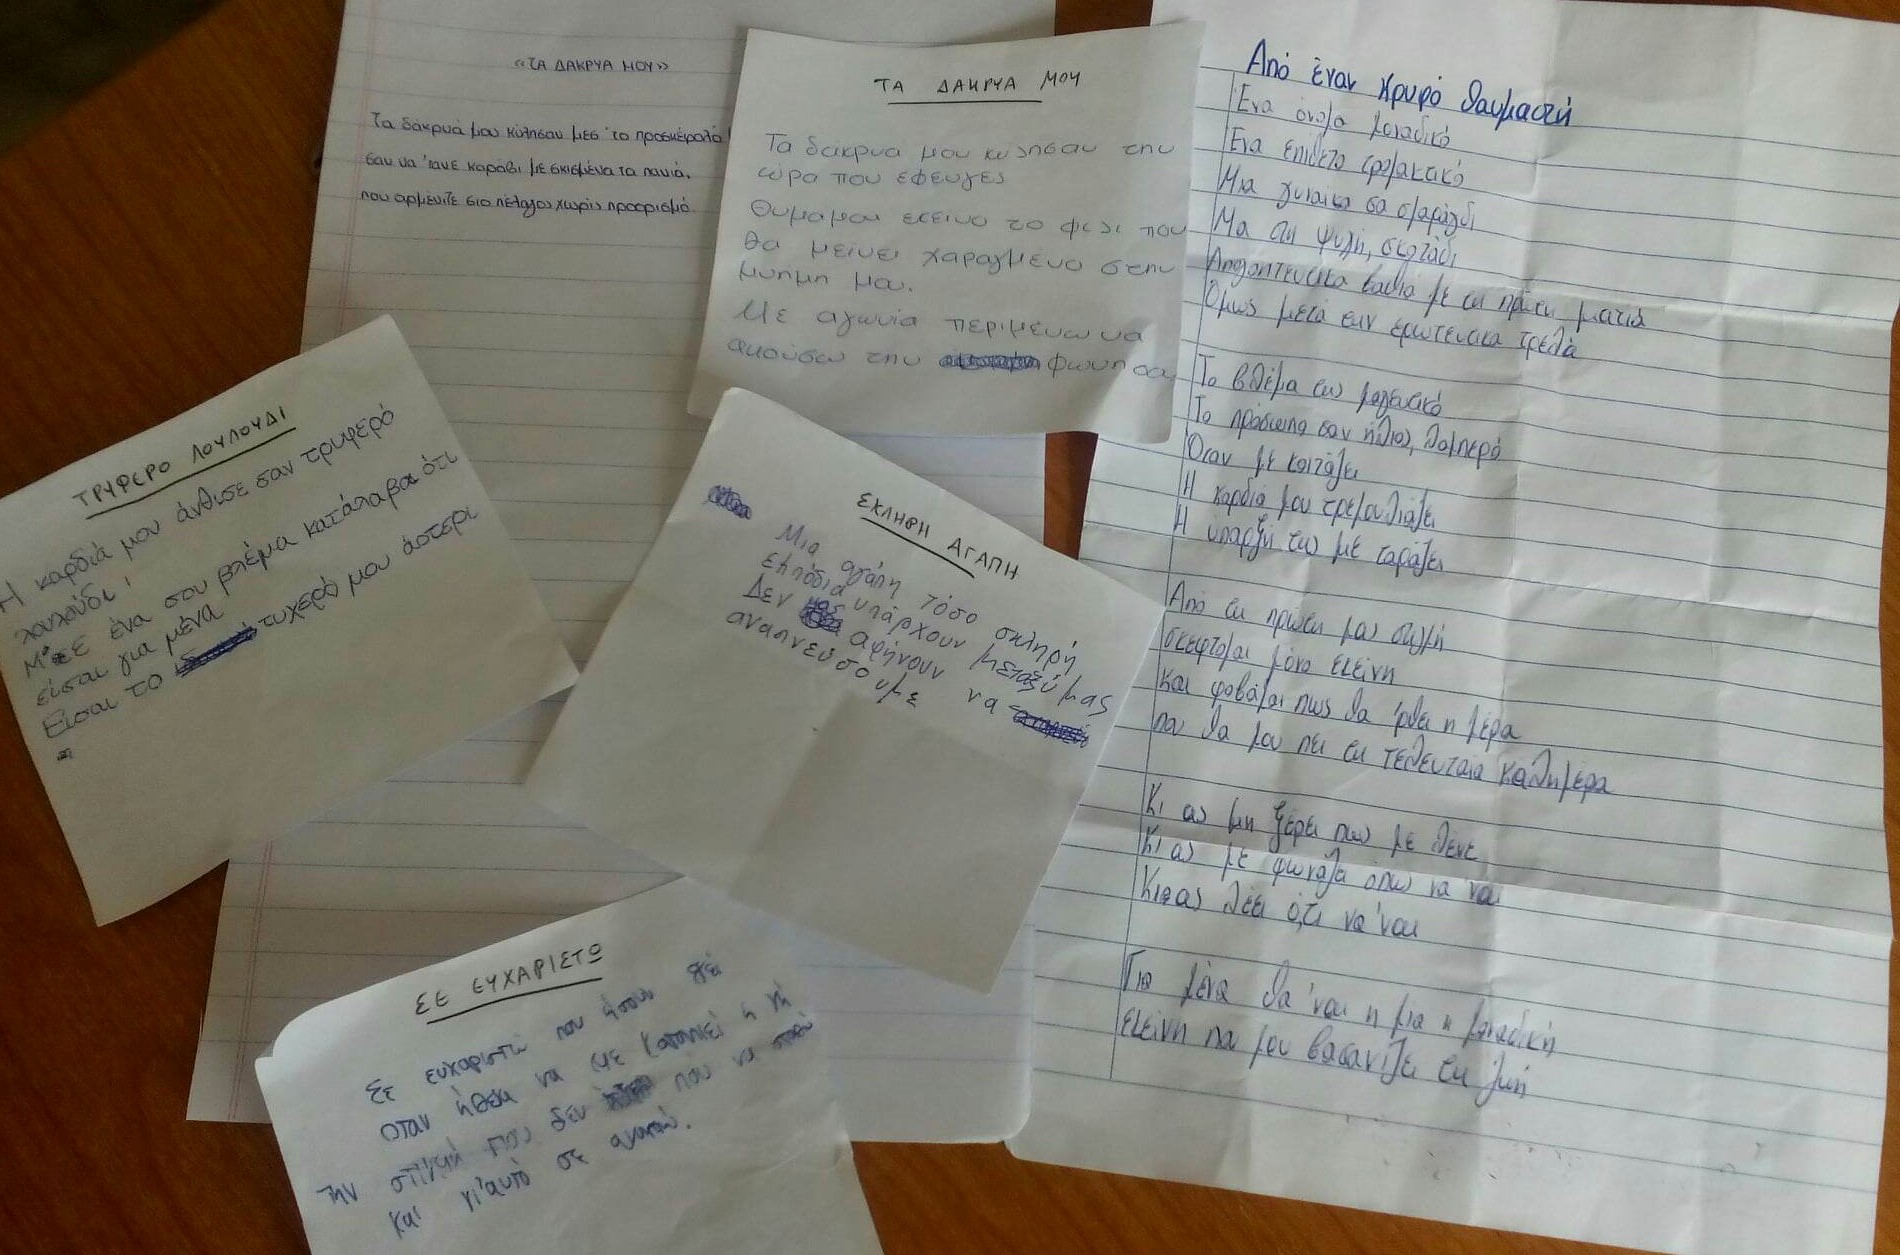 «ΤΑ ΔΑΚΡΥΑ ΜΟΥ»
Τα δάκρυά μου κύλησαν μες 'το προσκέφαλο
σαν να 'τανε καράβι με σκισμένα τα πανιά,
που αρμένιζε στο πέλαγος χωρίς προορισμό.
ΤΑ ΔΑΚΡΥΑ ΜΟΥ
Τα δακρυα μου κύλησαν την
ώρα που εφευγες
Θυμαμαι εκεινο το φιλι που
θα μεινει χαραγμενο στην
μνημη μου.
Με αγωνία περιμενω να
ακούσω την φωνη σου
Από έναν κρυφό θαυμαστή
Ένα όνομα μοναδικό
Ένα επίθετο τρομακτικό
Μια γυναίκα σα σμαράγδι
Μα στη ψυχή, σκοτάδι
με τη πρώτη ματιά
Όμως μετά την ερωτεύτικα τρελά
Το βλέμα της μαγευτικό
Το πρόσωπο σαν ήλιος, λαμπερό
Όταν με κοιτάζει
Η καρδιά μου τρεμουλιάζει
Η ύπαρξή της με ταράζει
Από τη πρώτη μας στιγμή
σκέφτομαι μόνο εκείνη
και φοβάμαι πως θα 'ρθει η μέρα
που θα μου πει τη τελευταία καλημέρα
Κι ας μη ξέρει πως με λένε
Κι ας με φωνάζει όπως να 'ναι
Κι ας λέει ό,τι να 'ναι
Για μένα θα 'ναι η μια κ μοναδική
εκείνη που μου βασανίζει τη ζωή
ΤΡΥΦΕΡΟ ΛΟΥΛΟΥΔΙ
Η καρδιά μου άνθισε σαν τρυφερό
λουλούδι!
Μ' ένα σου βλέμα κατάλαβα ότι
είσαι για μένα
Είσαι το τυχερό μου άστερι
ΣΚΛΗΡΗ ΑΓΑΠΗ
Μια αγάπη τόσο σκληρή
εμπόδια υπάρχουν μεταξύ μας
Δεν μας αφήνουν να
αναπνεύσουμε
ΣΕ ΕΥΧΑΡΙΣΤΩ
Σε ευχαριστώ που ήσουν εδώ
όταν ήθελα να
την στιγμή που δεν που να
και γι'αυτό σε αγαπώ.